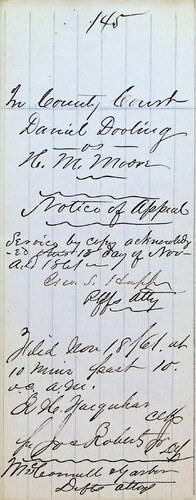 145
In County Court
Daniel Dooling
vs
H. M. Moore
Notice of Appeal
Service by copy acknowledg
-ed this 18 day of Nov-
AD 1861 -
Geo. S.
Plffs atty
Filed Nov 18/61. at
10 mins past 10.
o.c. a.m.
R. H. Farquhar clk
by Jos Roberts Jr. Dy
McConnell &
Defts attys